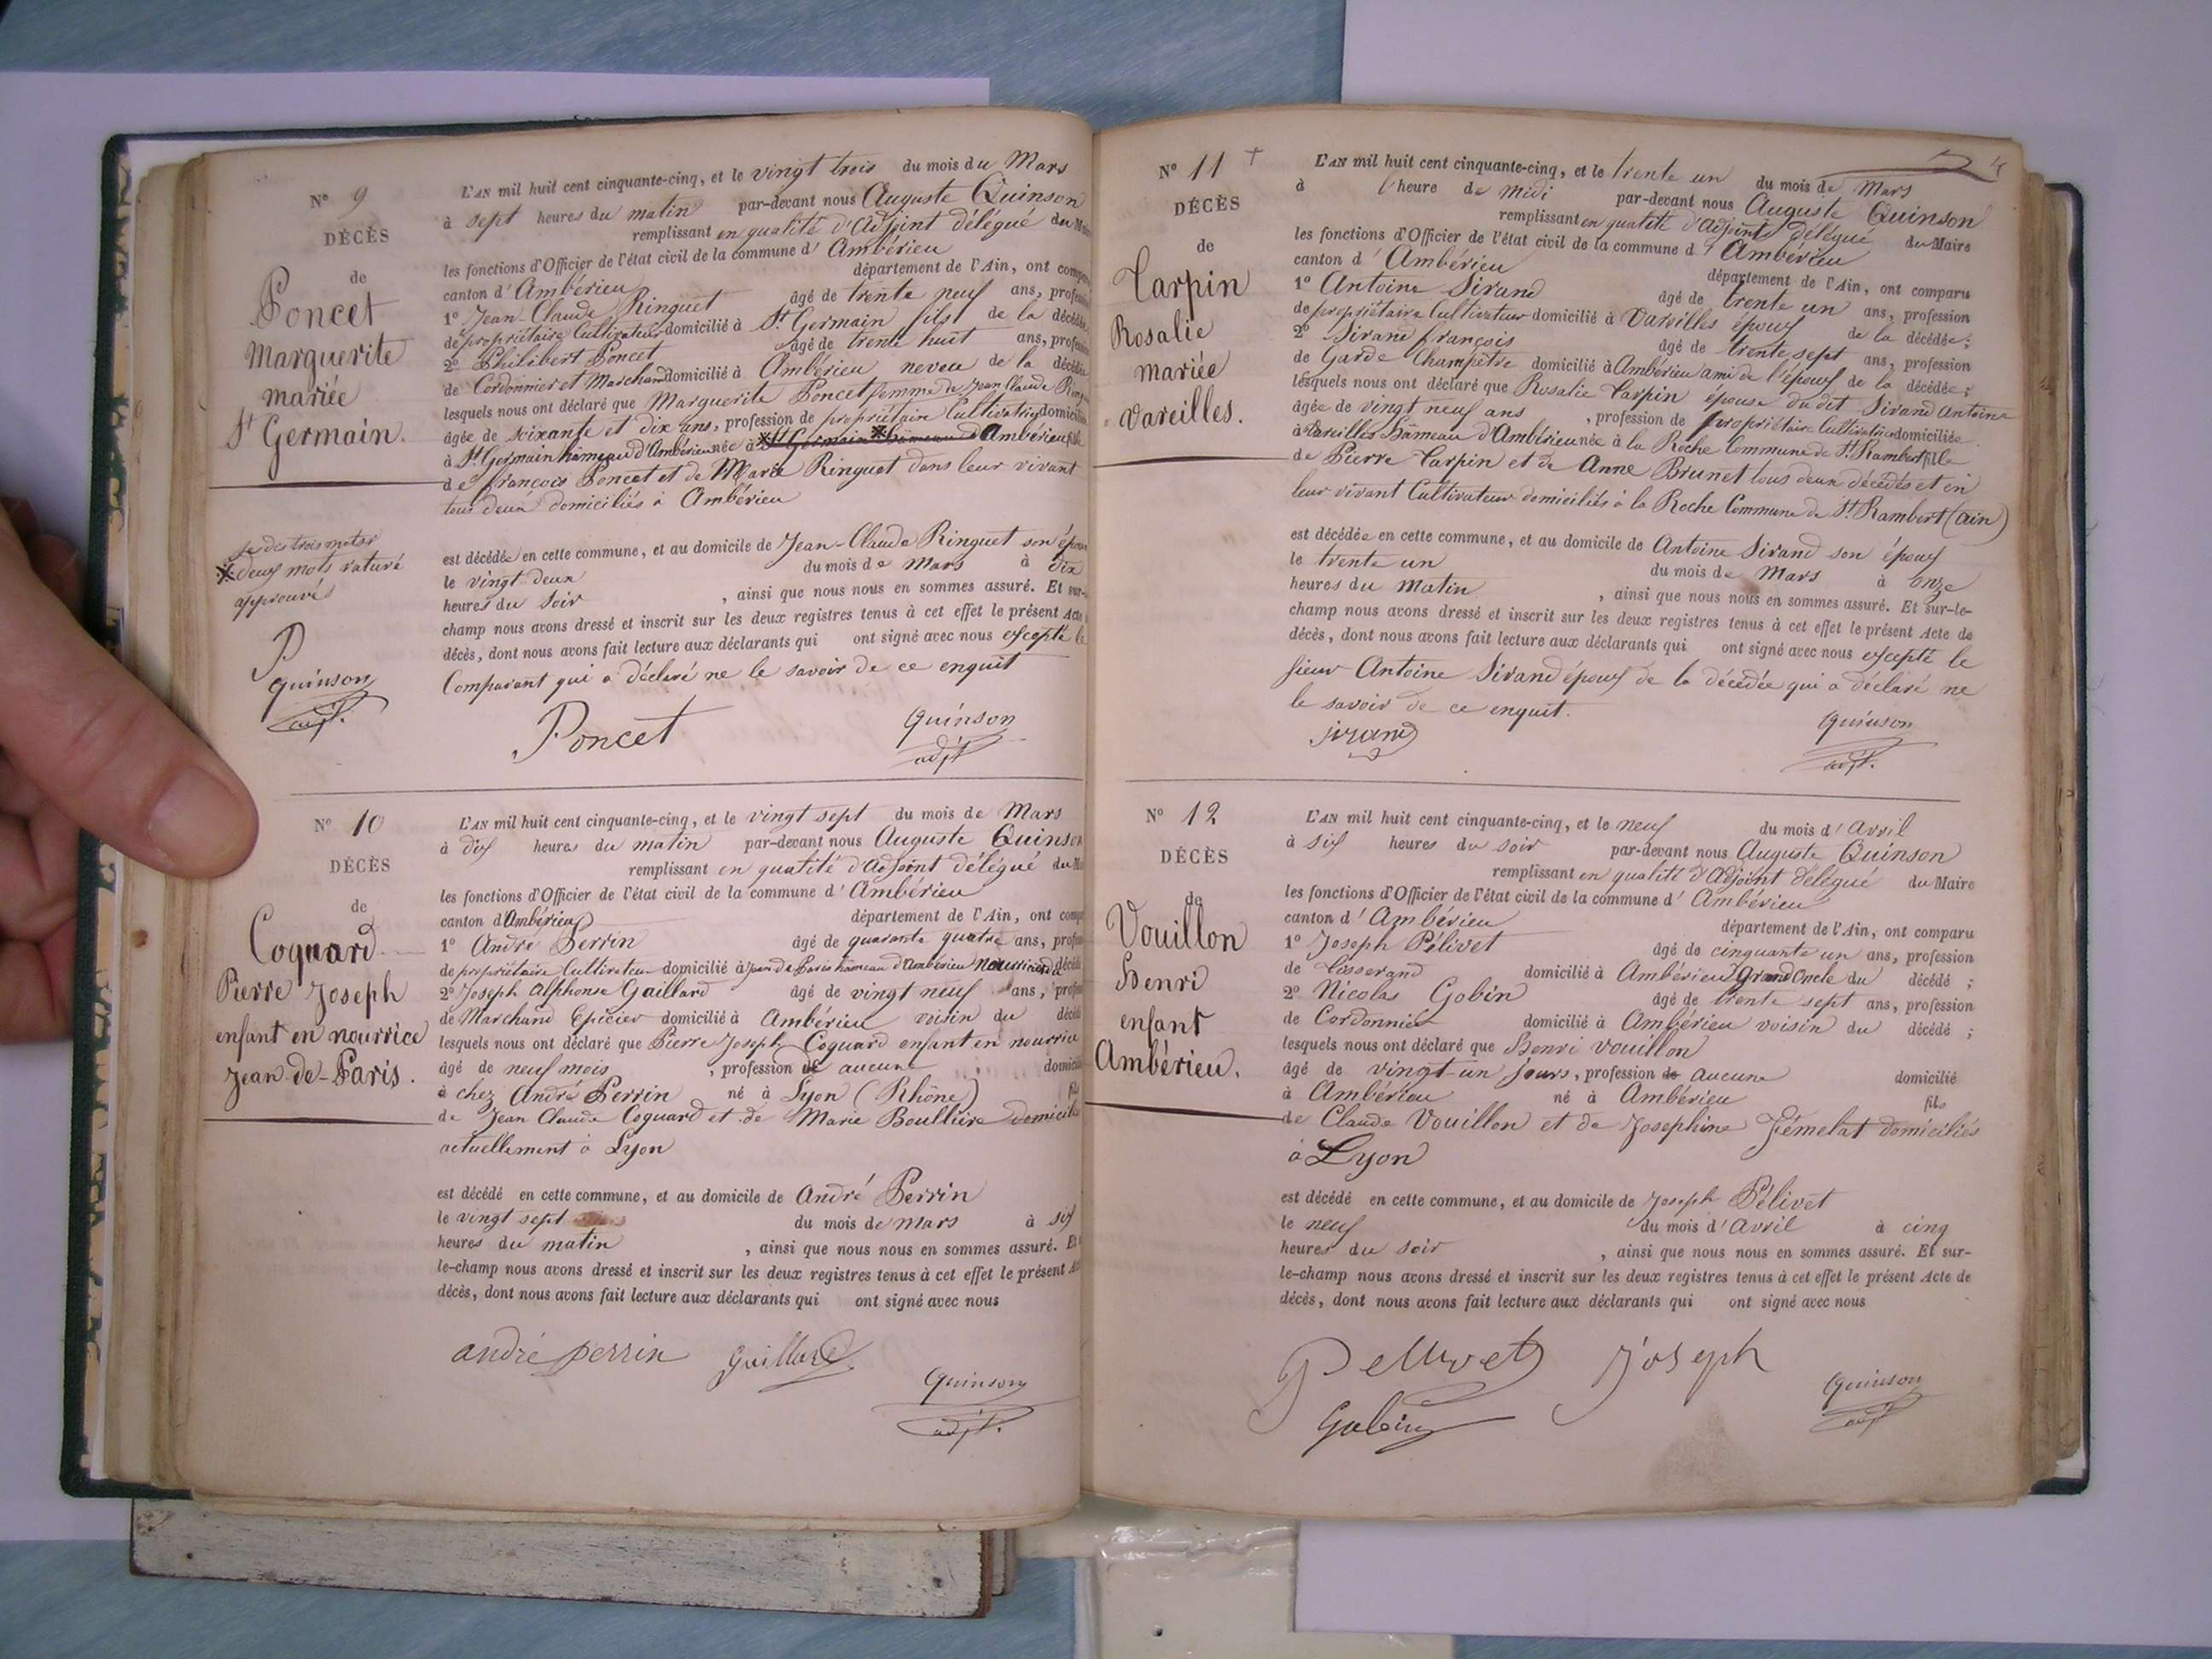 N° 9
DÉCÈS
de
Poncet
Marguerite
mariée
St Germain.
L'AN mil huit cent cinquante-cinq, et le vingt trois du mois du Mars
à sept heures du matin par-devant nous Auguste Quinson
remplissant en qualité d'Adjoint délégué du
les fonctions d'Officier de l'état civil de la commune d' Ambérieu
canton d' Ambérieu département de l'Ain, ont
1° Jean-Claude Ringuet âgé de trente neuf ans,
de propriétaire Cultivateur domicilié à St Germain fils de la
2° Philibert Poncet âgé de trente huit ans,
de Cordonnier et Marchand domicilié à Ambérieu neveu de la
lesquels nous ont déclaré que Marguerite Poncet femme de Jean Claude
âgée de soixante et dix ans, profession de propriétaire Cultivatrice
à St Germain hâmeau d'Ambérieu née à St Germain hâmeau d'Ambérieu
de François Poncet et de Marie Ringuet dans leur vivant
tous deux domiciliés à Ambérieu
deux mots raturé
approuvés
P
Quinson
adjt.
est décédée en cette commune, et au domicile de Jean-Claude Ringuet son
le vingt deux du mois de Mars à dix
heures du soir , ainsi que nous nous en sommes assuré. Et sur-
champ nous avons dressé et inscrit sur les deux registres tenus à cet effet le présent Acte
décès, dont nous avons fait lecture aux déclarants qui ont signé avec nous excepté le
Comparant qui a déclaré ne le savoir de ce enquit
Poncet Quinson
adjt
N° 10
DÉCÈS
de
Coquard
Pierre Joseph
enfant en nourrice
Jean-de-Paris.
L'AN mil huit cent cinquante-cinq, et le vingt sept du mois de Mars
à dix heures du matin par-devant nous Auguste Quinson
remplissant en qualité d'Adjoint délégué du
les fonctions d'Officier de l'état civil de la commune d' Ambérieu
canton d'Ambérieu département de l'Ain, ont
1° André Perrin âgé de quarante quatre ans,
de propriétaire Cultivateur domicilié à Jean de Paris hâmeau d'Ambérieu
2° Joseph Alphonse Gaillard âgé de vingt neuf ans,
de Marchand Epicier domicilié à Ambérieu voisin du
lesquels nous ont déclaré que Pierre Joseph Coquard enfant en nourrice
âgé de neuf mois , profession de aucune
à chez André Perrin né à Lyon (Rhône) fils
de Jean Claude Coquard et de Marie
actuellement à Lyon
est décédé en cette commune, et au domicile de André Perrin
le vingt sept du mois de Mars à six
heures du matin , ainsi que nous nous en sommes assuré. Et
le-champ nous avons dressé et inscrit sur les deux registres tenus à cet effet le présent
décès, dont nous avons fait lecture aux déclarants qui ont signé avec nous
andré perrin Gaillard
Quinson
adjt.
N° 11
DÉCÈS
de
Tarpin
Rosalie
mariée
Vareilles.
L'AN mil huit cent cinquante-cinq, et le trente un du mois de Mars
à l'heure de midi par-devant nous Auguste Quinson
remplissant en qualité d'Adjoint délégué du Maire
les fonctions d'Officier de l'état civil de la commune d' Ambérieu
canton d' Ambérieu département de l'Ain, ont comparu
1° Antoine Sirand âgé de trente un ans, profession
de propriétaire Cultivateur domicilié à Vareilles époux de la décédée ;
2° Sirand françois âgé de trente sept ans, profession
de Garde Champêtre domicilié à Ambérieu ami de l'époux de la décédée ;
lesquels nous ont déclaré que Rosalie Tarpin épouse du dit Sirand Antoine
âgée de vingt neuf ans , profession de propriétaire Cultivatrice domiciliée
à Vareilles hâmeau d'Ambérieu née à la Roche Commune de St Rambert fille
de Pierre Tarpin et de Anne Brunet tous deux décédés et en
leur vivant Cultivateurs domiciliés à la Roche Commune de St Rambert (Ain)
est décédée en cette commune, et au domicile de Antoine Sirand son époux
le trente un du mois de Mars à onze
heures du matin , ainsi que nous nous en sommes assuré. Et sur-le-
champ nous avons dressé et inscrit sur les deux registres tenus à cet effet le présent Acte de
décès, dont nous avons fait lecture aux déclarants qui ont signé avec nous excepté le
sieur Antoine Sirand époux de la décédée qui a déclaré ne
le savoir de ce enquit.
Sirand Quinson
adjt.
N° 12
DÉCÈS
de
Vouillon
Henri
enfant
Ambérieu.
L'AN mil huit cent cinquante-cinq, et le neuf du mois d'Avril
à six heures du soir par-devant nous Auguste Quinson
remplissant en qualité d'Adjoint délégué du Maire
les fonctions d'Officier de l'état civil de la commune d' Ambérieu
canton d' Ambérieu département de l'Ain, ont comparu
1° Joseph Pélivet âgé de cinquante un ans, profession
de Tisserand domicilié à Ambérieu Grand Oncle du décédé ;
2° Nicolas Gobin âgé de trente sept ans, profession
de Cordonnier domicilié à Ambérieu voisin du décédé ;
lesquels nous ont déclaré que Henri Vouillon
âgé de vingt-un jours, profession de aucune domicilié
à Ambérieu né à Ambérieu fils
de Claude Vouillon et de Josephine Jémelat domiciliés
à Lyon
est décédé en cette commune, et au domicile de Joseph Pélivet
le neuf du mois d'Avril à cinq
heures du soir , ainsi que nous nous en sommes assuré. Et sur-
le-champ nous avons dressé et inscrit sur les deux registres tenus à cet effet le présent Acte de
décès, dont nous avons fait lecture aux déclarants qui ont signé avec nous
Pellivet Joseph
Gobin Quinson
adjt